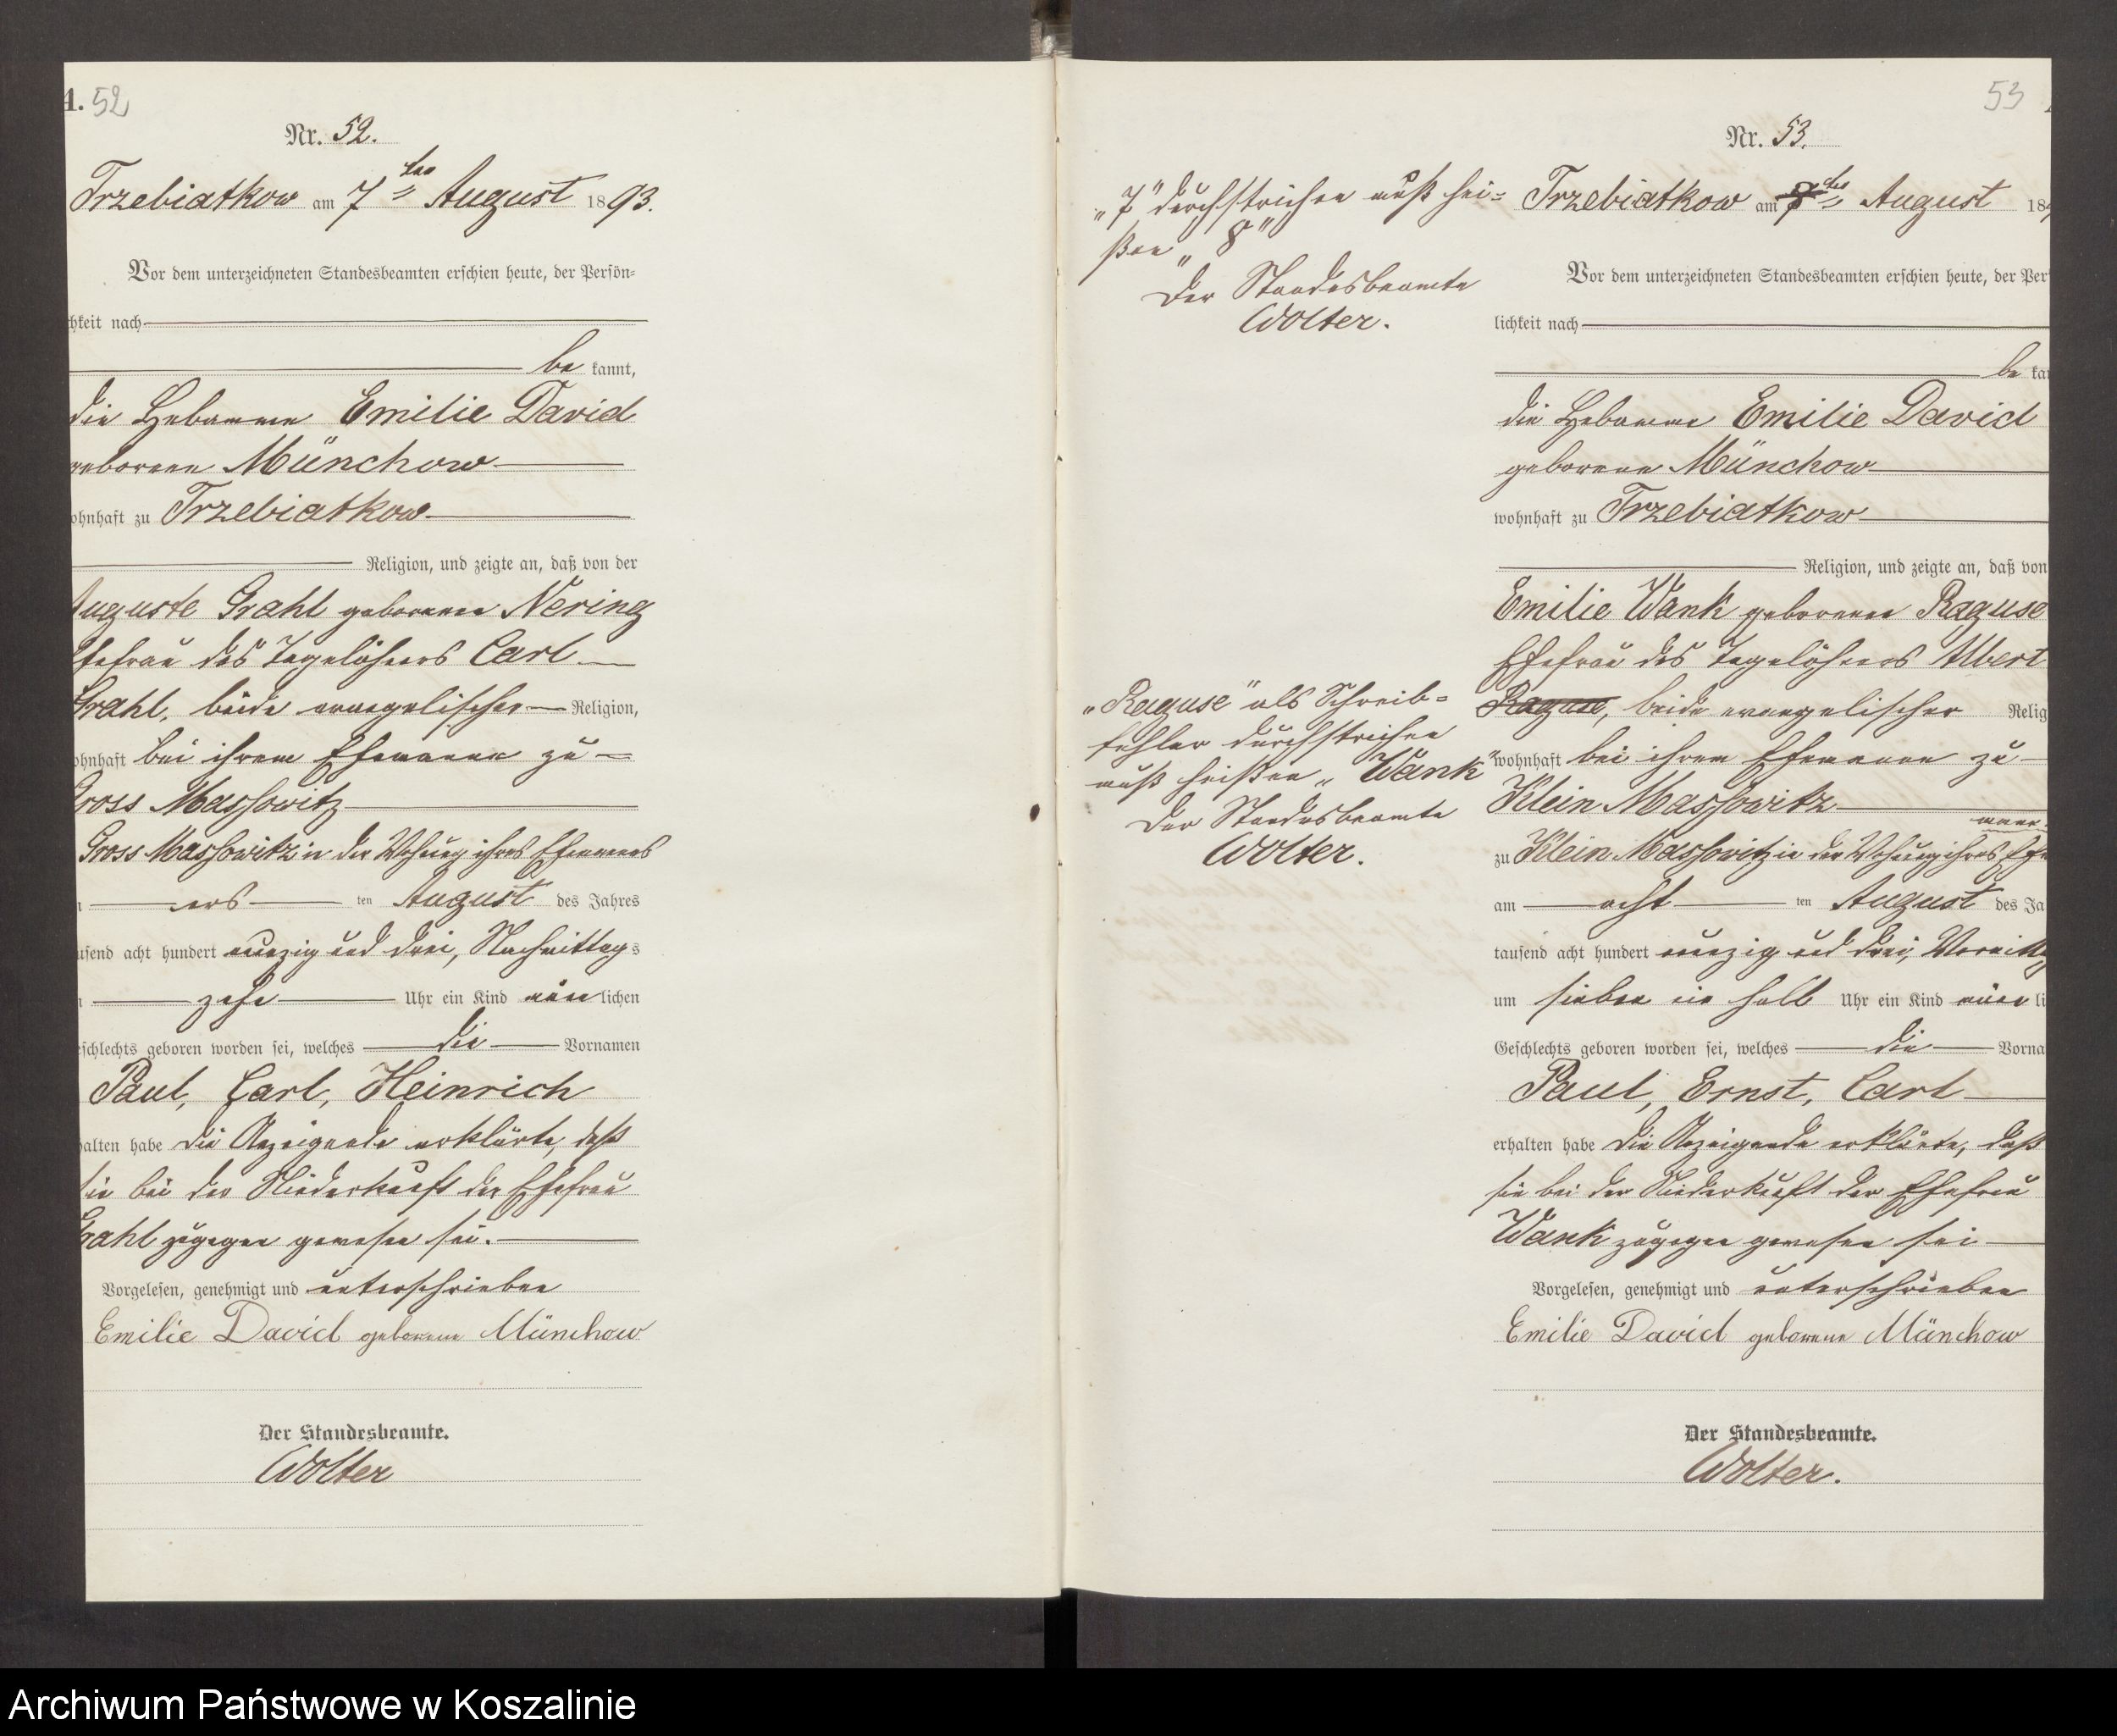 A. 52
Nr. 52.
Trzebiatkow am 7 ten August 1893.
Vor dem unterzeichneten Standesbeamten erschien heute, der Persön-
hkeit nach
be kannt,
die Hebamme Emilie David
geborene Münchow
ohnhaft zu Trzebiatkow
Religion, und zeigte an, daß von der
Auguste Grahl geborenen Nering
Ehefrau des Tagelöhners Carl
Grahl, beide evangelischer Religion,
ohnhaft bei ihrem Ehemanne zu
Gross Massowitz
Gross Massowitz in der Wohnung ihres Ehemannes
ers ten August des Jahres
usend acht hundert neunzig und drei, Nachmittags
zehn Uhr ein Kind männlichen
schlechts geboren worden sei, welches die Vornamen
Paul, Carl, Heinrich
halten habe die Anzeigende erklärte, daß
sie bei der Niederkunft der Ehefrau
Grahl zugegen gewesen sei.
Vorgelesen, genehmigt und unterschrieben
Emilie David geborene Münchow
Der Standesbeamte.
Wolter
53
Nr. 53.
"7" durchstrichen muß hei-
ßen "8"
Der Standesbeamte
Wolter.
Trzebiatkow am 7 ten August 18
Vor dem unterzeichneten Standesbeamten erschien heute, der Per
lichkeit nach
be ka
die Hebamme Emilie David
geborene Münchow
wohnhaft zu Trzebiatkow
Religion, und zeigte an, daß von
Emilie Wank geborenen Raguse
Ehefrau des Tagelöhners Albert
"Raguse" als Schreib-
fehler durchstrichen
muß heißen "Wank"
Der Standesbeamte
Wolter.
Raguse, beide evangelischer Relig
wohnhaft bei ihrem Ehemanne zu
Klein Massowitz
zu Klein Massowitz in der Wohnung ihres Ehe
mannes
am acht ten August des Ja
tausend acht hundert neunzig und drei, Vormittag
um sieben ein halb Uhr ein Kind männ li
Geschlechts geboren worden sei, welches die Vorna
Paul, Ernst, Carl
erhalten habe die Anzeigende erklärte, daß
sie bei der Niederkunft der Ehefrau
Wank zugegen gewesen sei
Vorgelesen, genehmigt und unterschrieben
Emilie David geborene Münchow
Der Standesbeamte.
Wolter.
Archiwum Państwowe w Koszalinie